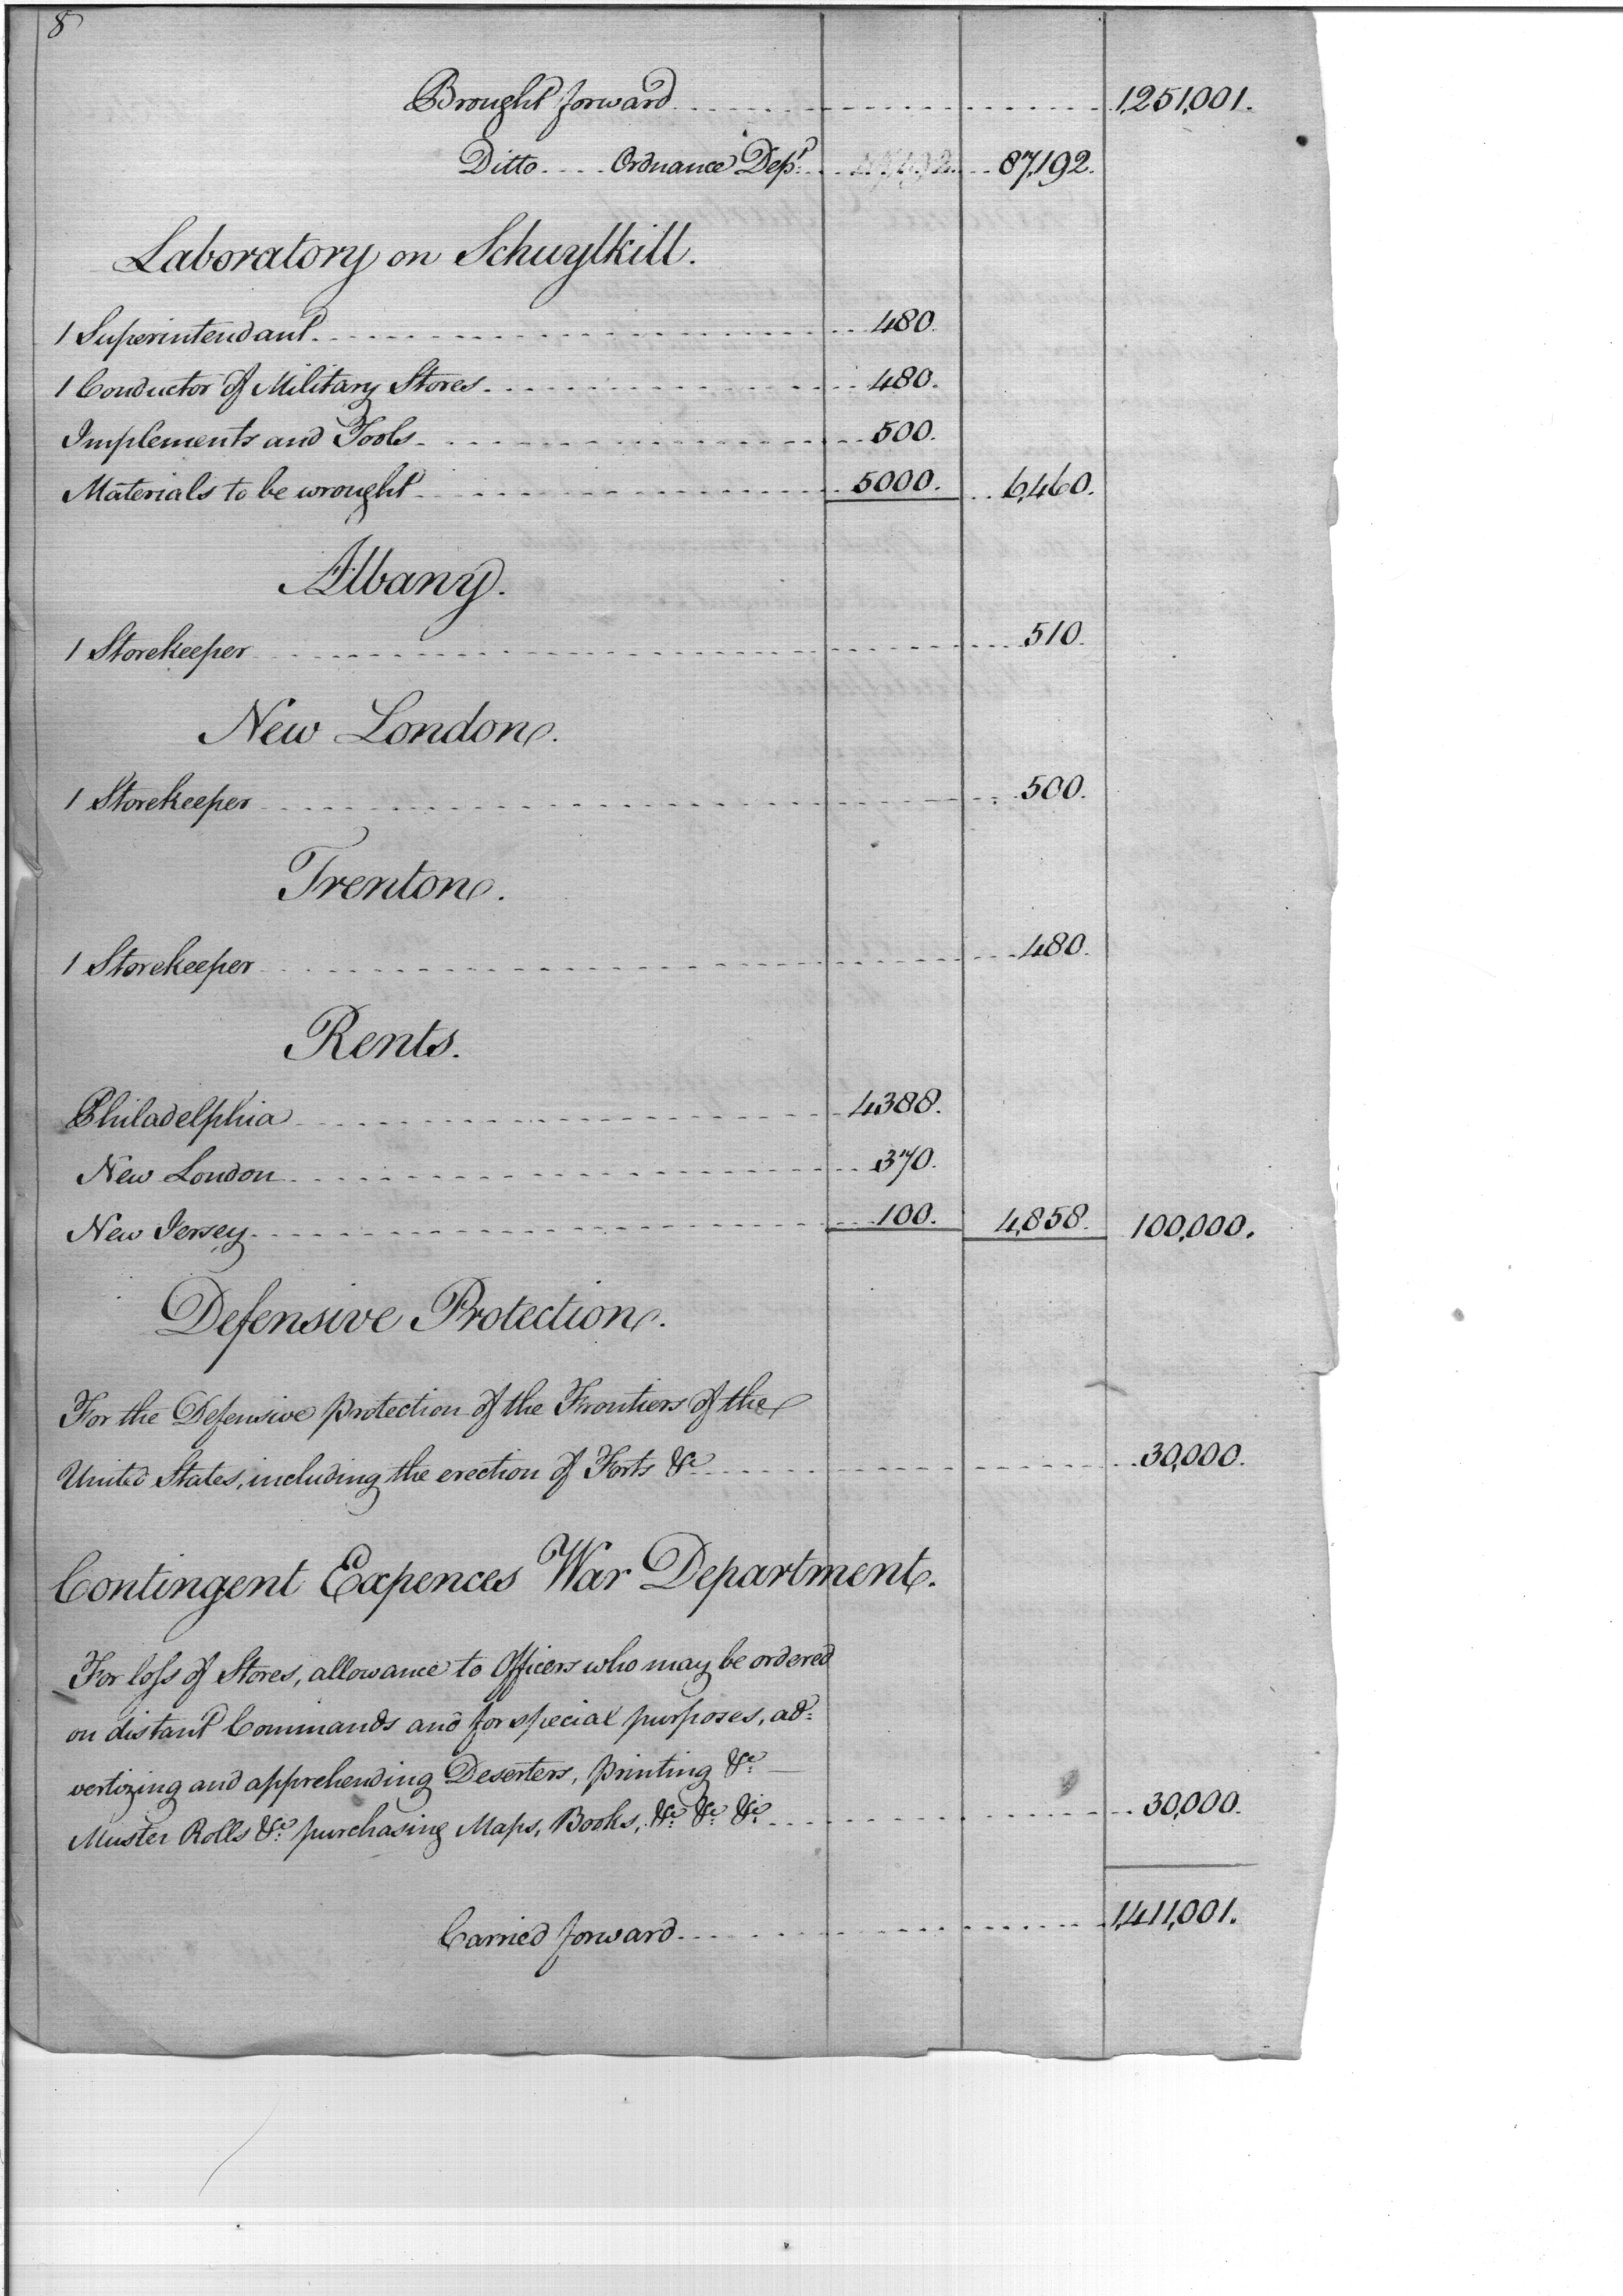 8
Brought forward 1,251,001.
Ditto Ordnance Dept. 87,192.
Laboratory on Schuylkill.
1 Superintendant 480.
1 Conductor of Military Stores 480.
Implements and Tools 500.
Materials to be wrought 5000. 6,460.
Albany.
1 Storekeeper 510.
New London.
1 Storekeeper 500.
Trenton.
1 Storekeeper 480.
Rents.
Philadelphia 4388.
New London 370.
New Jersey 100. 4,858. 100,000.
Defensive Protection.
For the Defensive protection of the Frontiers of the
United States, including the erection of Forts &c 30,000.
Contingent Expences War Department.
For loss of Stores, allowance to Officers who may be ordered
on distant Commands and for special purposes, ad=
vertizing and apprehending Deserters, printing &c.
Muster Rolls &c. purchasing Maps, Books, &c. &c. &c. 30,000.
Carried forward 1,411,001.